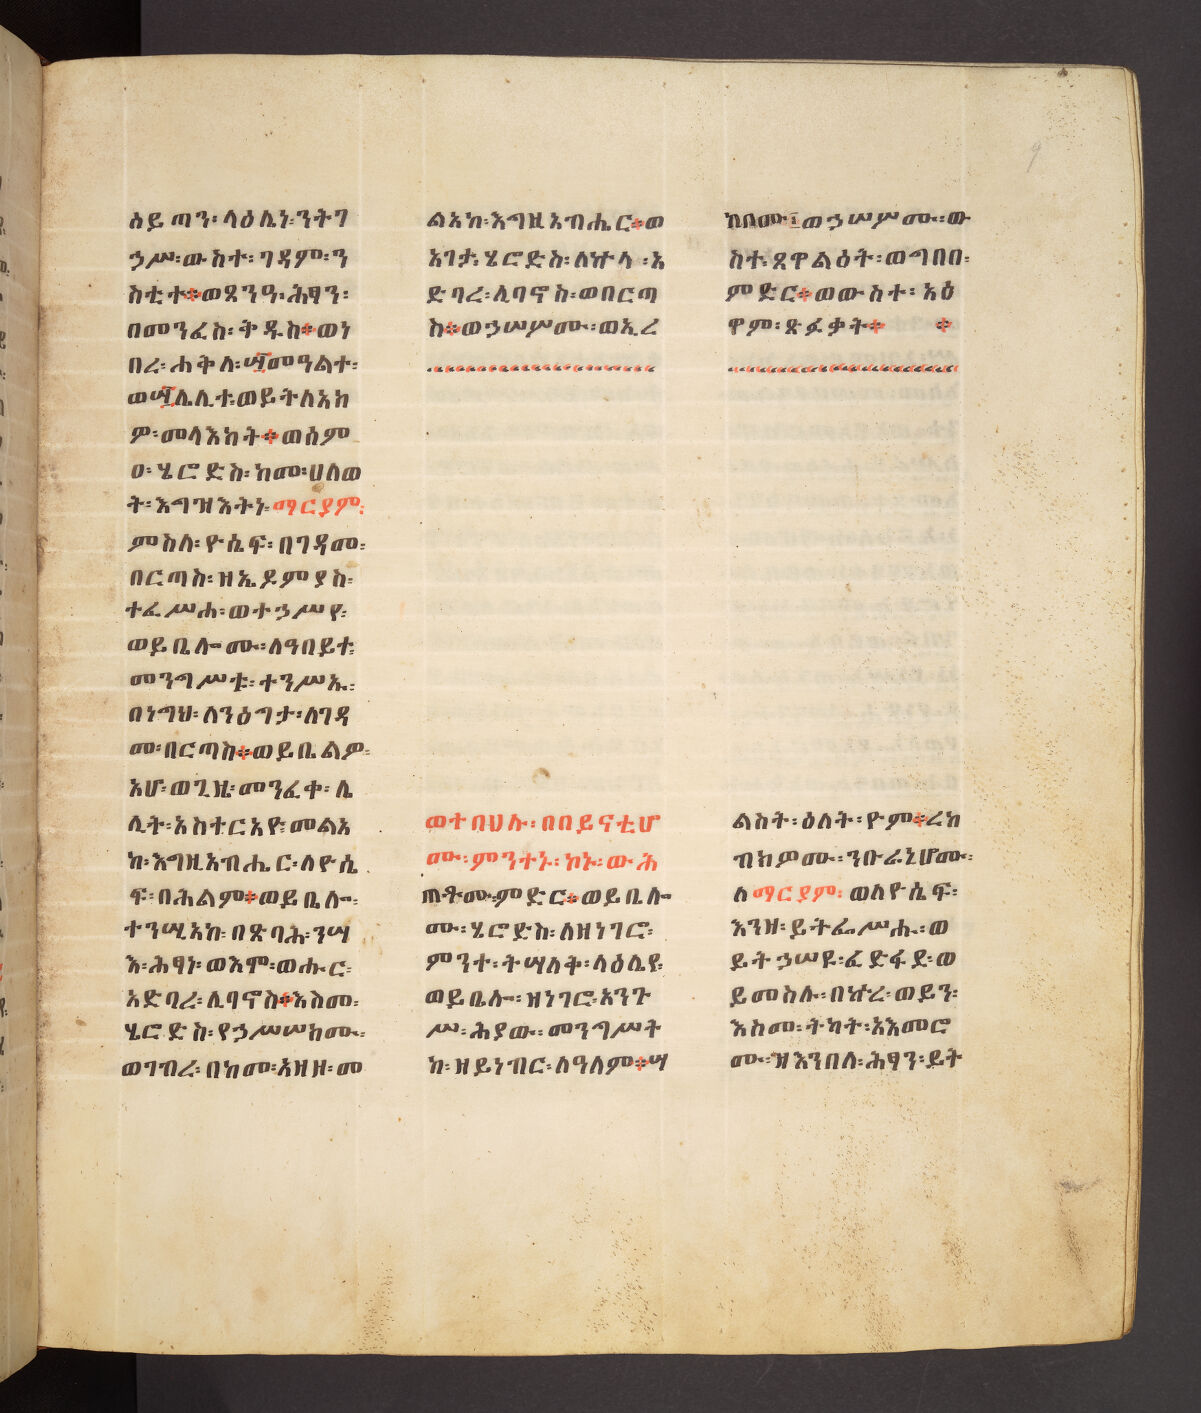 ዕይጣን፡ላዕሌነ፡ንትገ
ኃሥ፡ውስተ፡ገዳም፡ን
ስቲተ፨ወጸንዓ፡ሕፃን፡
በመንፈስ፡ቅዱስ፨ወነ
በረ፡ሐቅለ፡፵መዓልተ፡
ወ፵ሌሊተ፡ወይትለአክ
ዎ፡መላእክት፨ወሰም
ዐ፡ሄሮድስ፡ከመ፡ሀለወ
ት፡እግዝእትነ፡ማርያም፡
ምስለ፡ዮሴፍ፡በገዳመ፡
በርጣስ፡ዘኢዶምያስ፡
ተፈሥሐ፡ወተኃሥየ፡
ወይቤሎሙ፡ለዓበይተ፡
መንግሥቱ፡ተንሥኡ፡
በነግህ፡ለንዕግታ፡ለገዳ
መ፡በርጣስ፨ወይቤልዎ፡
አሆ፡ወጊዜ፡መንፈቀ፡ሌ
ሊት፡አስተርአዮ፡መልአ
ከ፡እግዚአብሔር፡ለዮሴ
ፍ፡በሕልም፨ወይቤሎ፡
ተንሢአከ፡በጽባሕ፡ንሣ
እ፡ሕፃነ፡ወእሞ፡ወሑር፡
አድባረ፡ሊባኖስ፨እስመ፡
ሄሮድስ፡የኃሥሠክሙ፡
ወገብረ፡በከመ፡አዘዘ፡መ
ልአከ፡እግዚአብሔር፨ወ
አገታ፡ሄሮድስ፡ለኵላ፡አ
ድባረ፡ሊባኖስ፡ወበርጣ
ስ፨ወኃሠሦሙ፡ወኢረ
ከቦሙ፤ወኃሠሦሙ፡ው
ስተ፡ጸዋልዕት፡ወግበበ፡
ምድር፨ወውስተ፡አዕ
ዋም፡ጽፈቃት፨ ፨
ወተበህሉ፡በበይናቲሆ
ሙ፡ምንተኑ፡ኮኑ፡ውሕ
ጠቶሙ፡ምድር፨ወይቤሎ
ሙ፡ሄሮድስ፡ለዘነገሮ፡
ምንተ፡ትሣለቅ፡ላዕሌየ፡
ወይቤሎ፡ዘነገሮ፡አንጉ
ሥ፡ሕያው፡መንግሥት
ከ፡ዘይነብር፡ለዓለም፨ሣ
ልስት፡ዕለት፡ዮም፨ረከ
ብክዎሙ፡ንቡራኒሆሙ፡
ለማርያም፡ወለዮሴፍ፡
እንዘ፡ይትፌሥሑ፡ወ
ይትኃሠዩ፡ፈድፋደ፡ወ
ይመስሉ፡በኵረ፡ወይን፡
እስመ፡ትካት፡አእመሮ
ሙ፡ዝእንበለ፡ሕፃን፡ይት